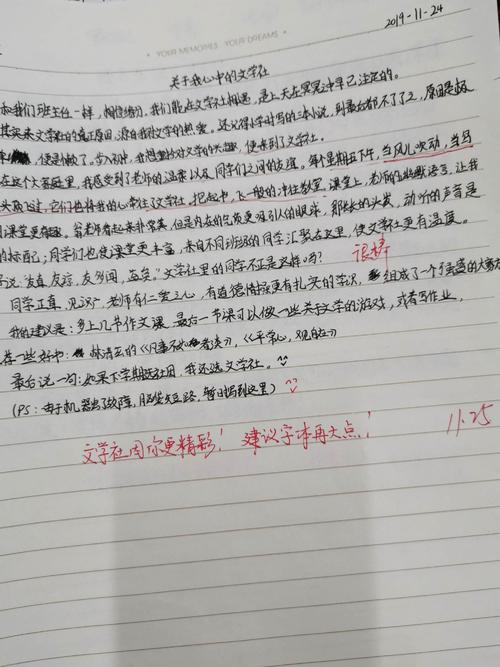 2019-11-24
YOUR MEMORIES YOUR DREAMS
关于我心中的文学社
和我们班主任一样,相信缘分,我们能在文学社相遇,是上天在冥冥中早已注定的。
其实来文学社的真正原因,源自我对文学的热爱,还记得小学时写的三本小说,到最后都不了了之,原因是
便退却了。步入初中,我想重拾对文学的兴趣,便来到了文学社。
在这个大家庭里,我感受到了老师的温柔以及同学们之间的友谊。每个星期五下午,当风儿吹动,当鸟
头顶过,它们也将我的心牵往文学社,把起中,飞一般的冲往教室,课堂上,老师的幽默语言,让我
课堂更有趣。翁老师看起来非常美,但是内在的气质更吸引人的眼球,那长长的头发,动听的声音是
的标配;同学们也使课堂更丰富,来自不同班级的同学汇聚在这里,使文学社更有温度。
很棒
说:友直,友谅,友多闻,益矣。"文学社里的同学不正是这样吗?
同学正直,见识广,老师有仁爱之心,有道德情操更有扎实的学识,组成了一个温馨的大家
我的建议是:多上几节作文课,最后一节课可以做一些关于文学的游戏,或者写作业,
荐一些好书:林清玄的《凡事不如看淡》,《平常心,观自在》
最后说一句:如果下学期选社团,我还选文学社。
(PS:由于机器出了故障,脑袋短路,暂时写到这里)
文学社因你更精彩! 建议字体再大点!
11.25